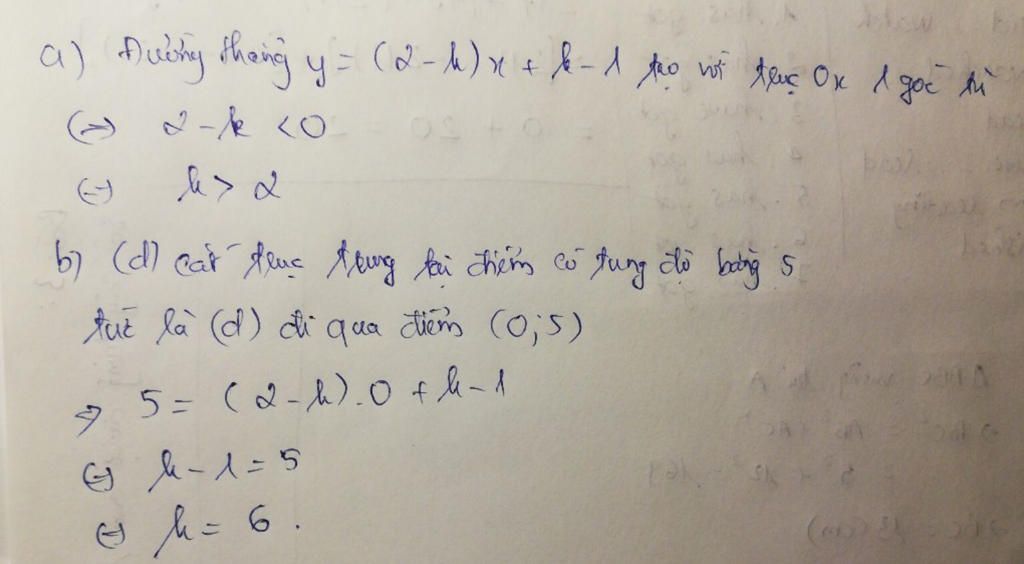 a) Đường thẳng y = (2-k)x + k-1 tạo với trục Ox 1 góc tù
(=) 2-k <0
(=) k > 2
b) (d) cắt trục tung tại điểm có tung độ bằng 5
tức là (d) đi qua điểm (0;5)
=> 5 = (2-k).0 + k-1
(=) k-1 = 5
(=) k = 6.